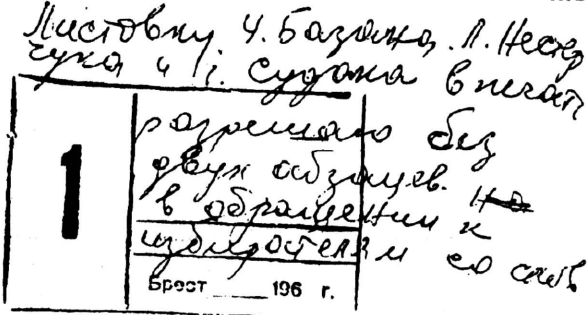 Листовку Ч. Базана, Л. Нестер
чука и Г. Судака в печать
разрешаю без
двух абзацев. на
в обращении к
избирателям со слов
1
Брест ____ 196 г.